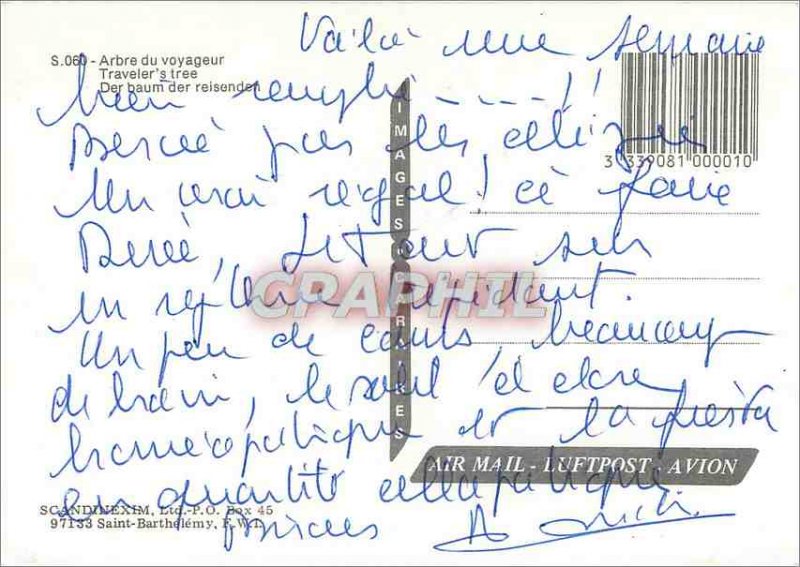 S.060 - Arbre du voyageur
Traveler's tree
Der baum der reisenden
Voilà une semaine
bien remplie ......!!
Bercée par les alizés
Un vrai régal! ce
, le tout sur
un rythme trépidant.
Un peu de cours, beaucoup
de bain, le soleil à dose
homéopathique et la fiesta
en quantité allopathique
Bises
3 339081 000010
IMAGES CARAIBES
GRAPHIL
AIR MAIL - LUFTPOST - AVION
SCANDINEXIM, Ltd.-P.O. Box 45
97133 Saint-Barthélemy, F.W.I.